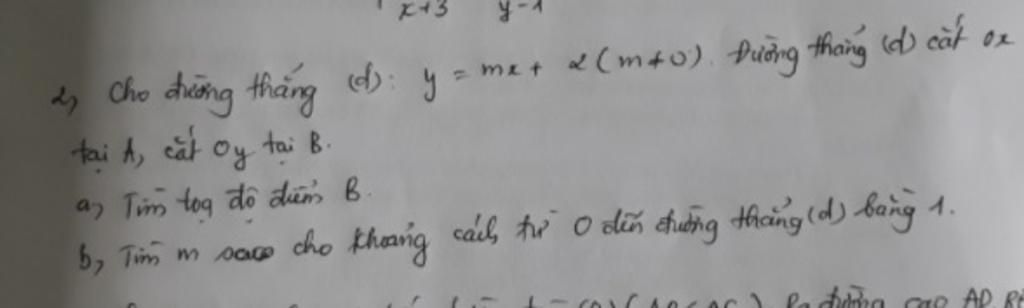 x+3 y-1
2, Cho đường thẳng (d): y = mx + 2 (m≠0). Đường thẳng (d) cắt Ox
tại A, cắt Oy tại B.
a, Tìm toạ độ điểm B.
b, Tìm m sao cho khoảng cách từ O đến đường thẳng (d) bằng 1.